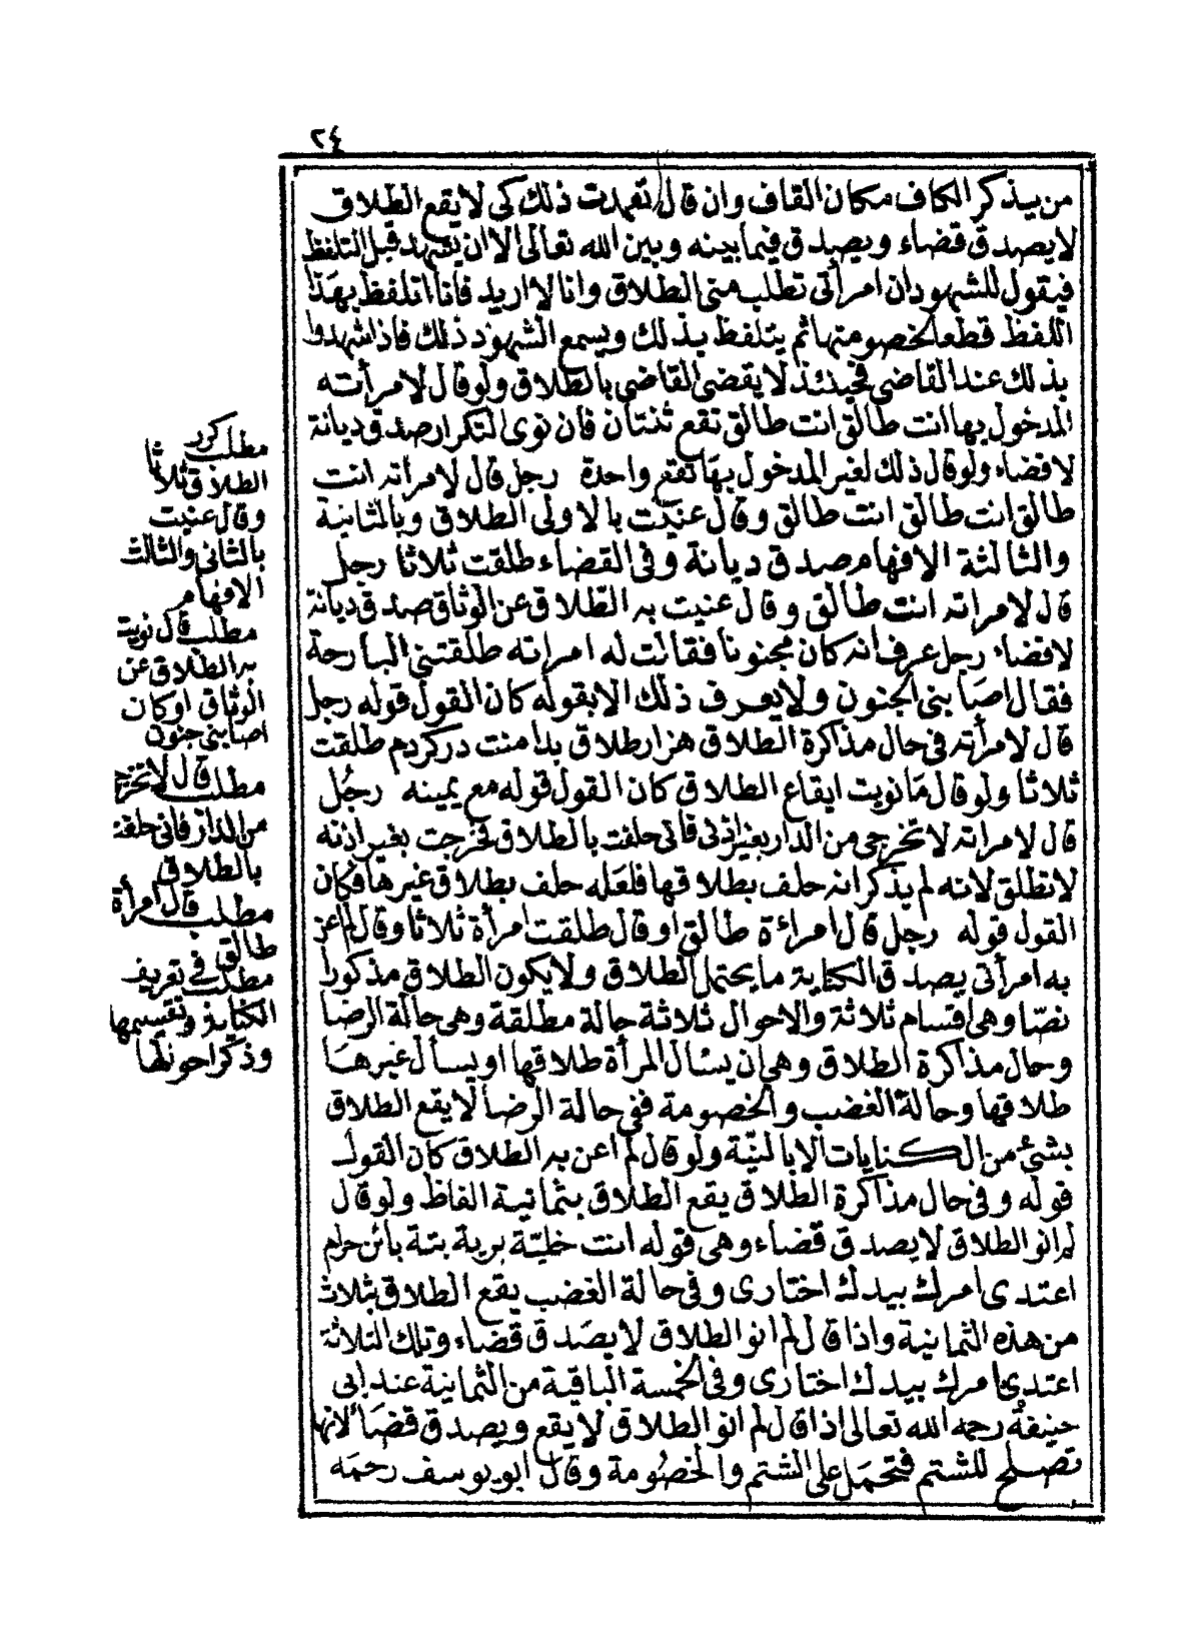 ٢٤
من يذكر الكاف مكان القاف وان قال تعمدت ذلك كى لا يقع الطلاق
لا يصدق قضاء ويصدق فيما بينه وبين الله تعالى الا ان يشهد قبل التلفظ
فيقول للشهود ان امرأتى تطلب منى الطلاق وانا لا اريد فانا اتلفظ بهذا
اللفظ قطعا لخصومتها ثم يتلفظ بذلك ويسمع الشهود ذلك فاذا شهدوا
بذلك عند القاضى فحينئذ لا يقضى القاضى بالطلاق ولو قال لامرأته
المدخول بها انت طالق انت طالق تقع ثنتان فان نوى التكرار صدق ديانة
لا قضاء ولو قال ذلك لغير المدخول بها تقع واحدة رجل قال لامراته انت
طالق انت طالق انت طالق وقال عنيت بالاولى الطلاق وبالثانية
والثالثة الافهام صدق ديانة وفى القضاء طلقت ثلاثا رجل
قال لامراته انت طالق وقال عنيت به الطلاق عن الوثاق صدق ديانة
لا قضاء رجل عرف انه كان مجنونا فقالت له امراته طلقتنى البارحة
فقال اصابنى الجنون ولا يعرف ذلك الا بقوله كان القول قوله رجل
قال لامرأته فى حال مذاكرة الطلاق هزار طلاق بدامنت در كردم طلقت
ثلاثا ولو قال ما نويت ايقاع الطلاق كان القول قوله مع يمينه رجل
قال لامراته لا تخرجى من الدار بغير اذنى فانى حلفت بالطلاق فخرجت بغير اذنه
لا تطلق لانه لم يذكر انه حلف بطلاقها فلعله حلف بطلاق غيرها فكان
القول قوله رجل قال امراءة طالق او قال طلقت امرأة ثلاثا وقال لم اعن
به امرأتى يصدق الكناية ما يحتمل الطلاق ولا يكون الطلاق مذكورا
نصّا وهى اقسام ثلاثة والاحوال ثلاثة حالة مطلقة وهى حالة الرضا
وحال مذاكرة الطلاق وهى ان يسئال المرأة طلاقها او يسأل غيرها
طلاقها وحالة الغضب والخصومة ففى حالة الرضا لا يقع الطلاق
بشئ من الكنايات الا بالنيّة ولو قال لم اعن به الطلاق كان القول
قوله وفى حال مذاكرة الطلاق يقع الطلاق بثمانية الفاظ ولو قال
لم انو الطلاق لا يصدق قضاء وهى قوله انت خليّة برية بتة بائن حرام
اعتدى امرك بيدك اختارى وفى حالة الغضب يقع الطلاق بثلاث
من هذه الثمانية واذا قال لم انو الطلاق لا يصدق قضاء وتلك الثلاثة
اعتدى امرك بيدك اختارى وفى الخمسة الباقية من الثمانية عند ابى
حنيفة رحمه الله تعالى اذا قال لم انو الطلاق لا يقع ويصدق قضاء لانها
تصلح للشتم فتحمل على الشتم والخصومة وقال ابو يوسف رحمه
مطلب كرر
الطلاق ثلاثا
وقال عنيت
بالثانى والثالث
الافهام
مطلب قال نويت
به الطلاق عن
الوثاق او كان
اصابنى جنون
مطلب قال لا تخرج
من الدار فانى حلفت
بالطلاق
مطلب قال امرأة
طالق
مطلب فى تعريف
الكناية وتقسيمها
وذكر احوالها